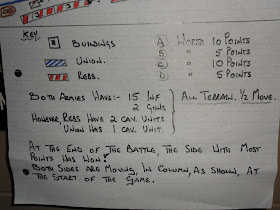 KEY.
BUILDINGS. (A) WOODS 10 POINTS
UNION. (B) " 5 POINTS
REBS. (C) " 10 POINTS
(D) " 5 POINTS
BOTH ARMIES HAVE:- 15 INF
2 GUNS
ALL TERRAIN. 1/2 MOVE.
HOWEVER, REBS HAVE 2 CAV. UNITS
UNION HAS 1 CAV. UNIT.
AT THE END OF THE BATTLE THE SIDE WITH MOST
POINTS HAS WON!
BOTH SIDES ARE MOVING, IN COLUMN, AS SHOWN, AT
THE START OF THE GAME.